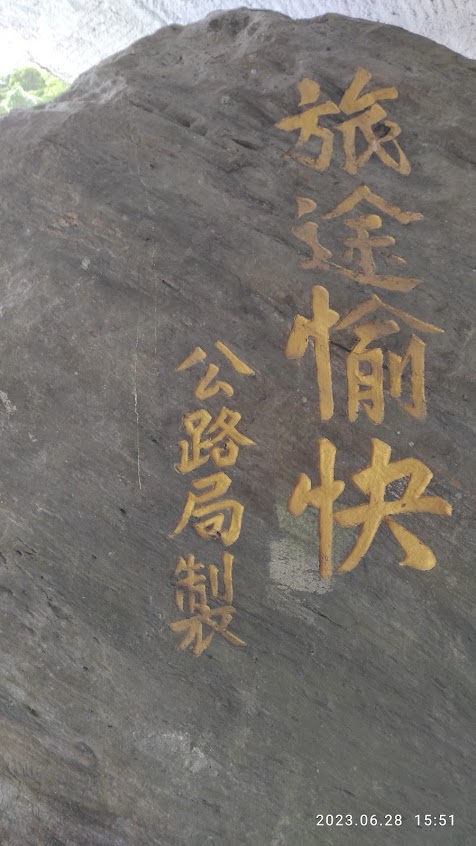 旅途愉快
公路局製
2023.06.28 15:51